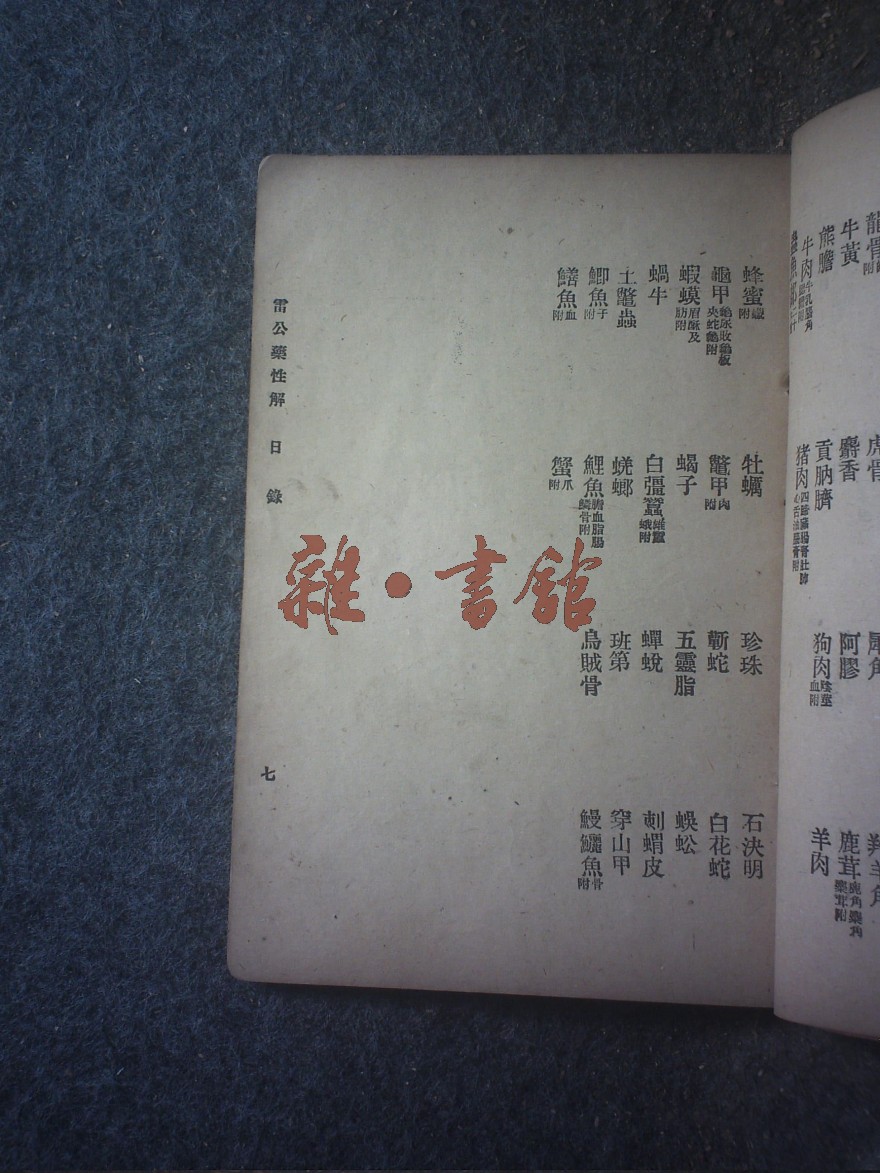 龍骨 虎骨 犀角
牛黃 麝香 阿膠 鹿茸
熊膽 肭臍 狗肉血附 羊肉
牛肉 猪肉
蜂蜜蠟附 牡蠣 珍珠 石決明
龜甲龜尿敗龜板夾蛇龜附 鼈甲肉附 蘄蛇 白花蛇
蝦蟆眉酥及肪附 蝎子 五靈脂 蜈蚣
蝸牛 白彊蠶雄蠶蛾附 蟬蛻 刺蝟皮
土鼈蟲 蜣螂 班第 穿山甲
鯽魚子附 鯉魚膽血脂腸鱗骨附 烏賊骨 鰻鱺魚骨附
鱔魚血附 蟹爪附
雷公藥性解 目錄 七
雜·書館